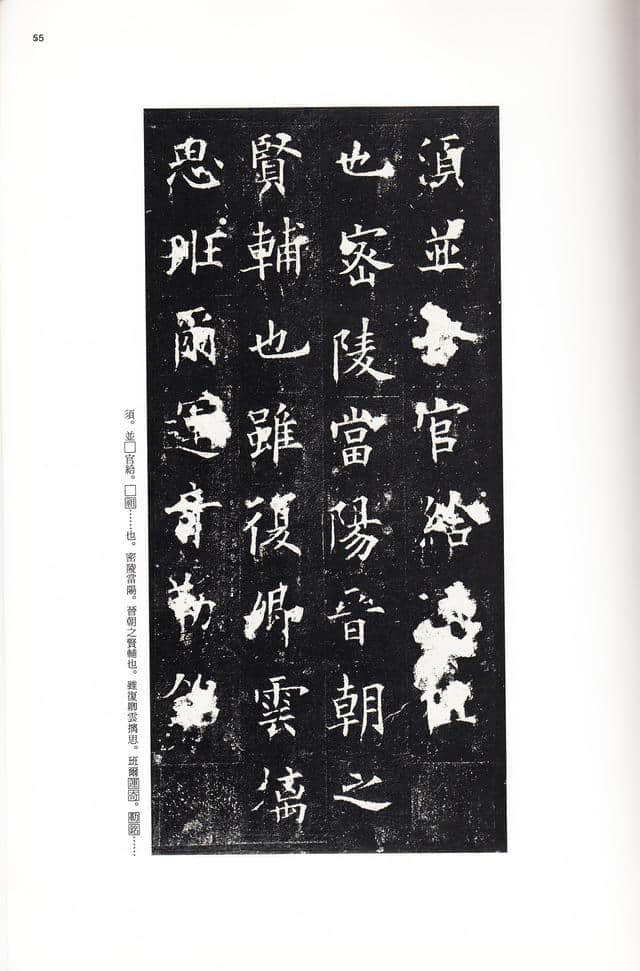 55
須並官給
也密陵當陽晉朝之
賢輔也雖復卿雲摛
思班爾運奇勒銘
須。並□官給。□祖……也。密陵當陽。晉朝之賢輔也。雖復卿雲摛思。班爾運奇。勒銘……